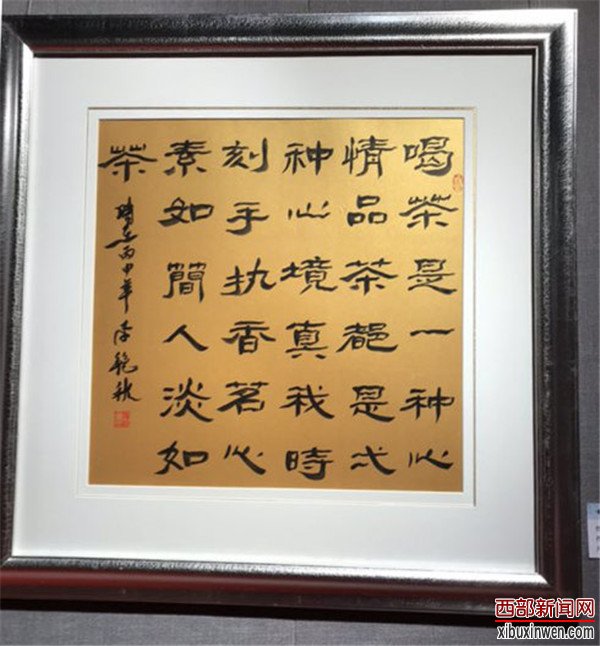 喝茶是一种心
情品茶都是弌
种心境真我時
刻手执香茗心
素如簡人淡如
茶
時在丙申年李艳秋
西部新闻网
xibuxinwen.com